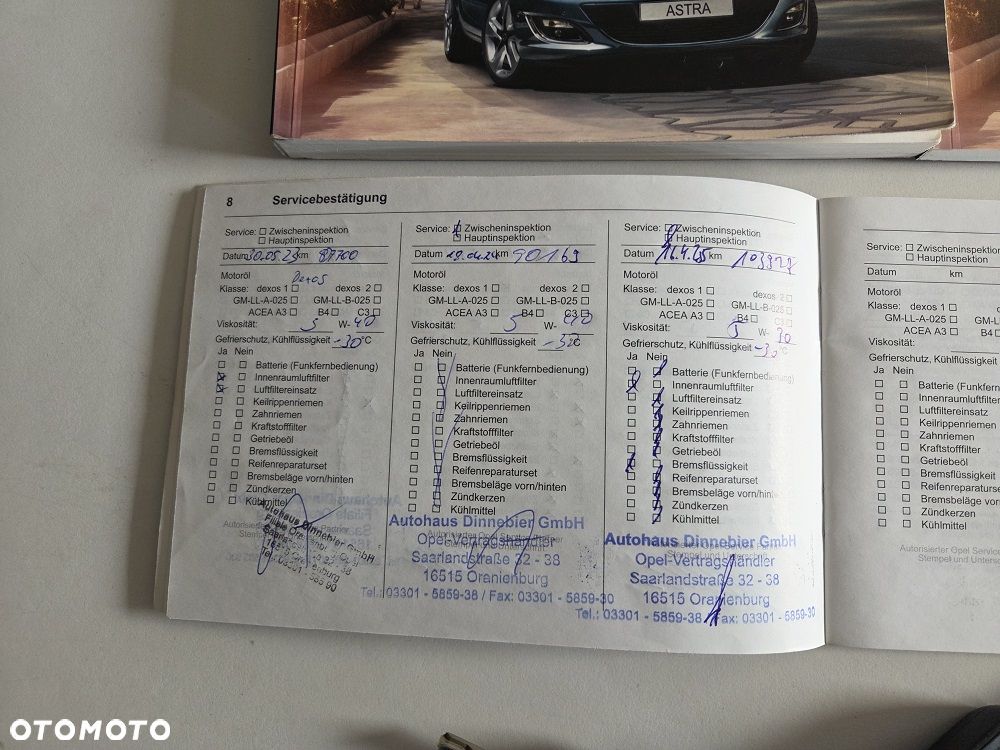 ASTRA
8 Servicebestätigung
Service: Zwischeninspektion
Hauptinspektion
Datum 30.05.23 km 87700
Motoröl Dexos
Klasse: dexos 1 dexos 2
GM-LL-A-025 GM-LL-B-025
ACEA A3 B4 C3
Viskosität: 5 W- 40
Gefrierschutz, Kühlflüssigkeit -30 °C
Ja Nein
Batterie (Funkfernbedienung)
Innenraumluftfilter
Luftfiltereinsatz
Keilrippenriemen
Zahnriemen
Kraftstofffilter
Getriebeöl
Bremsflüssigkeit
Reifenreparaturset
Bremsbeläge vorn/hinten
Zündkerzen
Kühlmittel
Autohaus Dinnebier GmbH
Service: Zwischeninspektion
Hauptinspektion
Datum 19.04.24 km 90169
Motoröl
Klasse: dexos 1 dexos 2
GM-LL-A-025 GM-LL-B-025
ACEA A3 B4 C3
Viskosität: 5 W- 40
Gefrierschutz, Kühlflüssigkeit °C
Ja Nein
Batterie (Funkfernbedienung)
Innenraumluftfilter
Luftfiltereinsatz
Keilrippenriemen
Zahnriemen
Kraftstofffilter
Getriebeöl
Bremsflüssigkeit
Reifenreparaturset
Bremsbeläge vorn/hinten
Zündkerzen
Kühlmittel
Autohaus Dinnebier GmbH
Opel-Vertragshändler
Saarlandstraße 32 - 38
16515 Oranienburg
Tel.: 03301 - 5859-38 / Fax: 03301 - 5859-30
Service: Zwischeninspektion
Hauptinspektion
Datum 16.4.25 km 103927
Motoröl
Klasse: dexos 1 dexos 2
GM-LL-A-025 GM-LL-B-025
ACEA A3 B4 C3
Viskosität: 5 W- 30
Gefrierschutz, Kühlflüssigkeit -30 °C
Ja Nein
Batterie (Funkfernbedienung)
Innenraumluftfilter
Luftfiltereinsatz
Keilrippenriemen
Zahnriemen
Kraftstofffilter
Getriebeöl
Bremsflüssigkeit
Reifenreparaturset
Bremsbeläge vorn/hinten
Zündkerzen
Kühlmittel
Autohaus Dinnebier GmbH
Opel-Vertragshändler
Saarlandstraße 32 - 38
16515 Oranienburg
Tel.: 03301 - 5859-38 / Fax: 03301 - 5859-30
Service: Zwischeninspektion
Hauptinspektion
Datum km
Motoröl
Klasse: dexos 1
GM-LL-A-025 GM-L
ACEA A3 B4
Viskosität:
Gefrierschutz, Kühlflüssigkeit
Ja Nein
Batterie (Funkfern
Innenraumluftfilter
Luftfiltereinsatz
Keilrippenriemen
Zahnriemen
Kraftstofffilter
Getriebeöl
Bremsflüssigkeit
Reifenreparaturse
Bremsbeläge vorn
Zündkerzen
Kühlmittel
Autorisierter Opel Servic
Stempel und Untersc
OTOMOTO